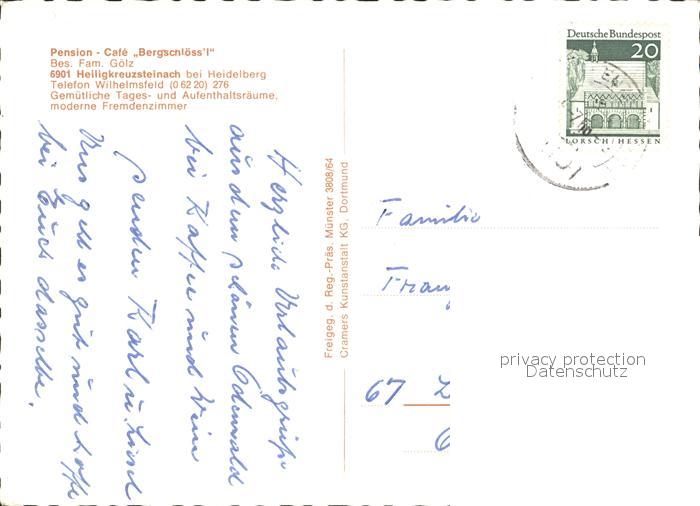 Pension - Café „Bergschlöss'l"
Bes. Fam. Gölz
6901 Heiligkreuzsteinach bei Heidelberg
Telefon Wilhelmsfeld (0 62 20) 276
Gemütliche Tages- und Aufenthaltsräume,
moderne Fremdenzimmer
Herzliche Urlaubsgrüße
aus dem schönen Odenwald
bei Kaffee und Wein
senden Karl u. Liesel
Uns geht es gut und hoffe
bei Euch dasselbe.
Freigeg. d. Reg.-Präs. Münster 3808/64
Cramers Kunstanstalt KG. Dortmund
Deutsche Bundespost
20
LORSCH/HESSEN
Familie
Franz
67
privacy protection
Datenschutz